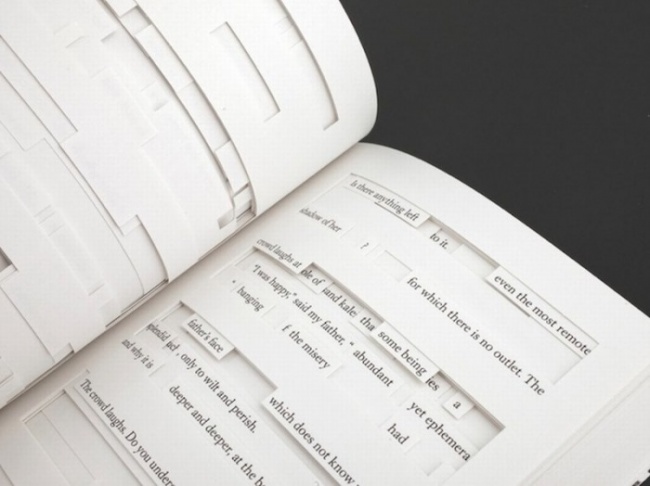 Is there anything left
to it.
even the most remote
shadow of her
?
for which there is no outlet. The
crowd laughs at
"I was happy," said my father, "
hanging
the misery
abundant
some being
a
yet ephemera
had
splendid
, only to wilt and perish.
father's face
and why it is
deeper and deeper, at the b
which does not know
The crowd laughs. Do you under